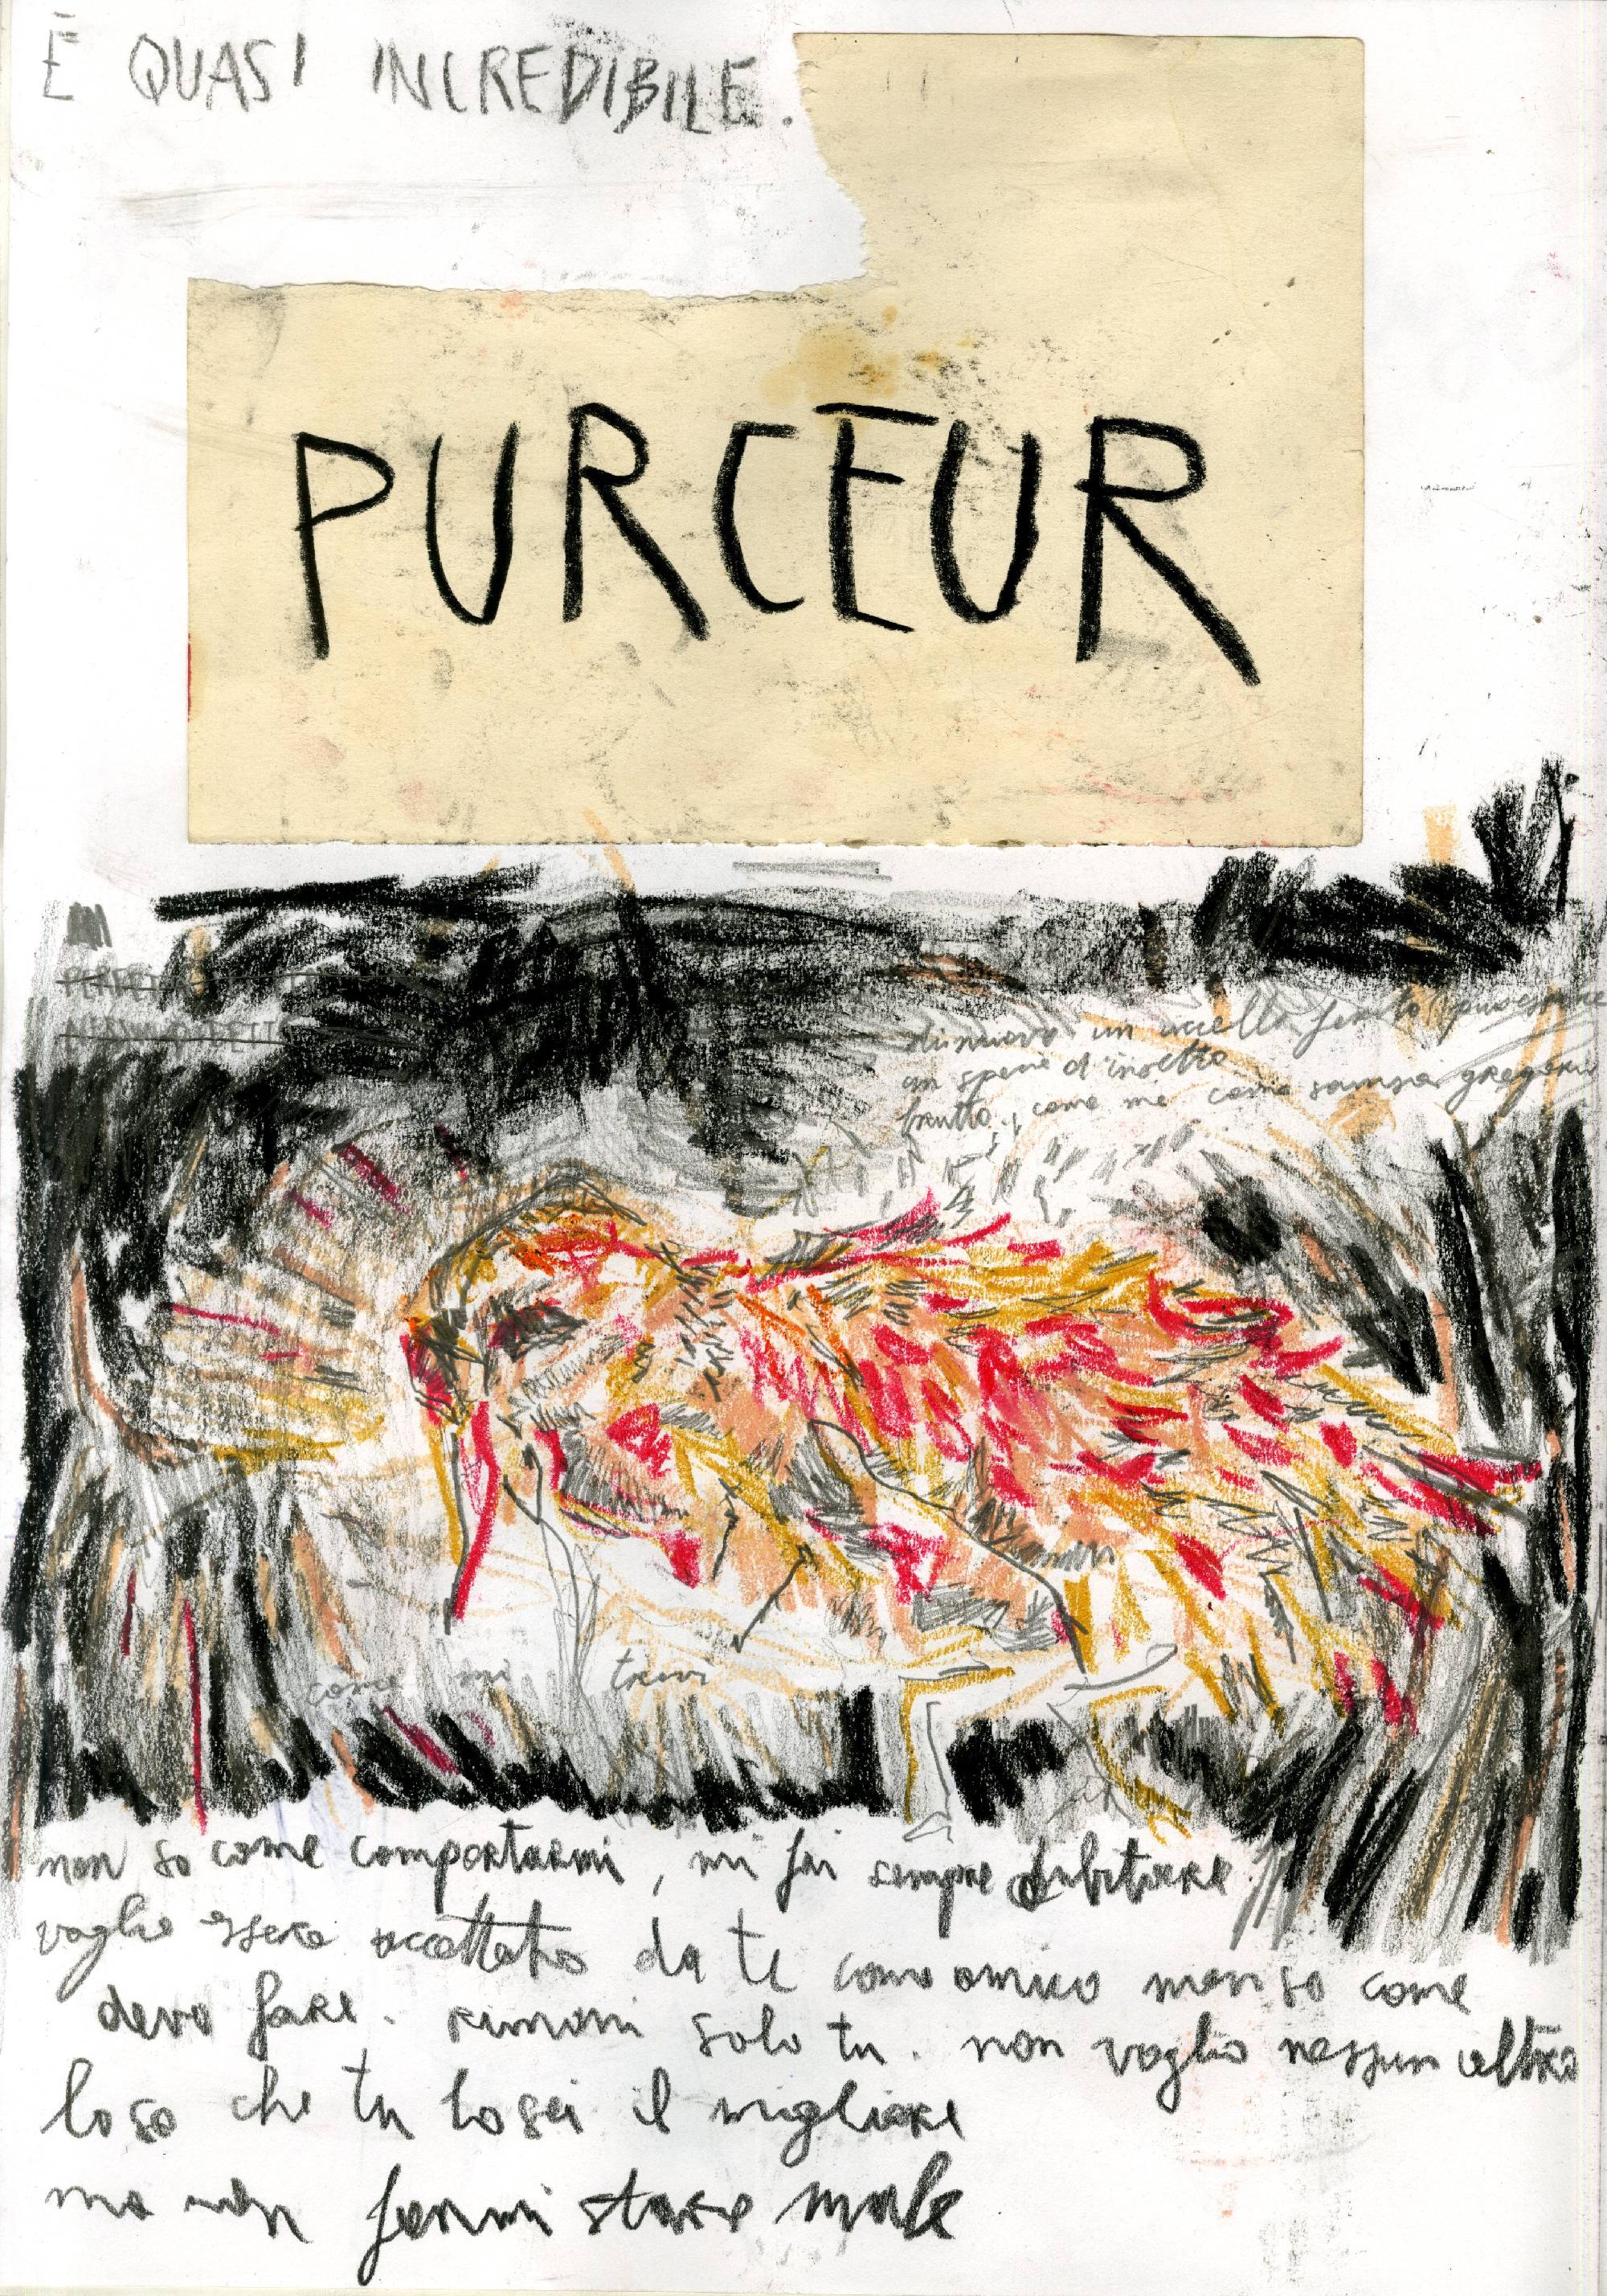 È QUASI INCREDIBILE.
PURCEUR
dinuovo un uccello ferito
un specie d'insetto
brutto, come me come samsa gregorio
come mi trovi
non so come comportarmi, mi fai sempre dubitare
voglio essere accettato da te come amico non so come
devo fare. rimani solo tu. non voglio nessun altro
lo so che tu lo sei il migliore
ma non farmi stare male